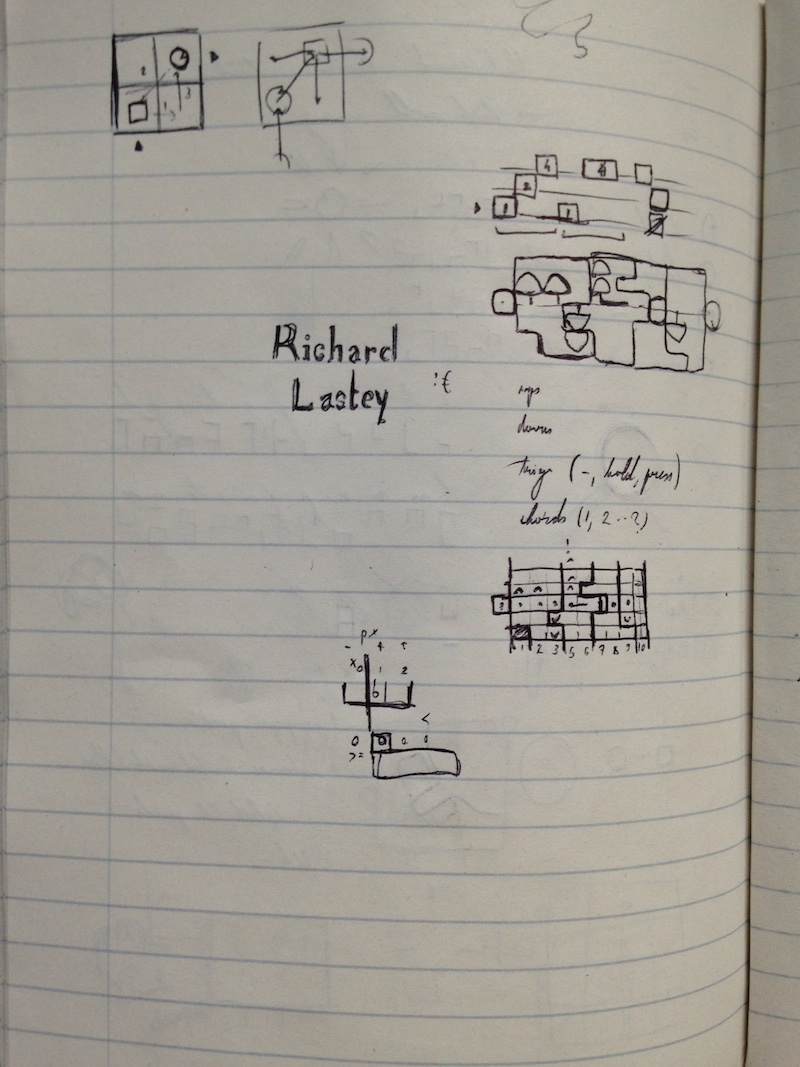 2
1
3
3
4
8
2
1
1
Richard
Lastey
ups
downs
trigs (-, hold, press)
chords (1, 2 -- ?)
1 2 3 5 6 7 8 9 10
px
- +
x 0 1 2
<
0 0 0 0
>=